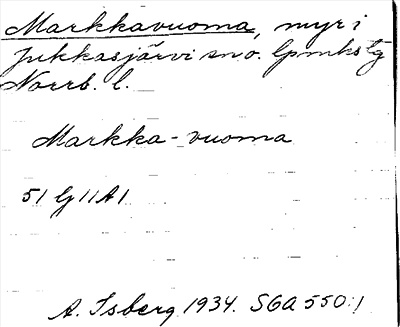 Markkavuoma, myr i
Jukkasjärvi sn o. lpmkstg
Norrb. l.
Markka-vuoma
51 G 11 A 1
A. Isberg 1934. SGA 550:1